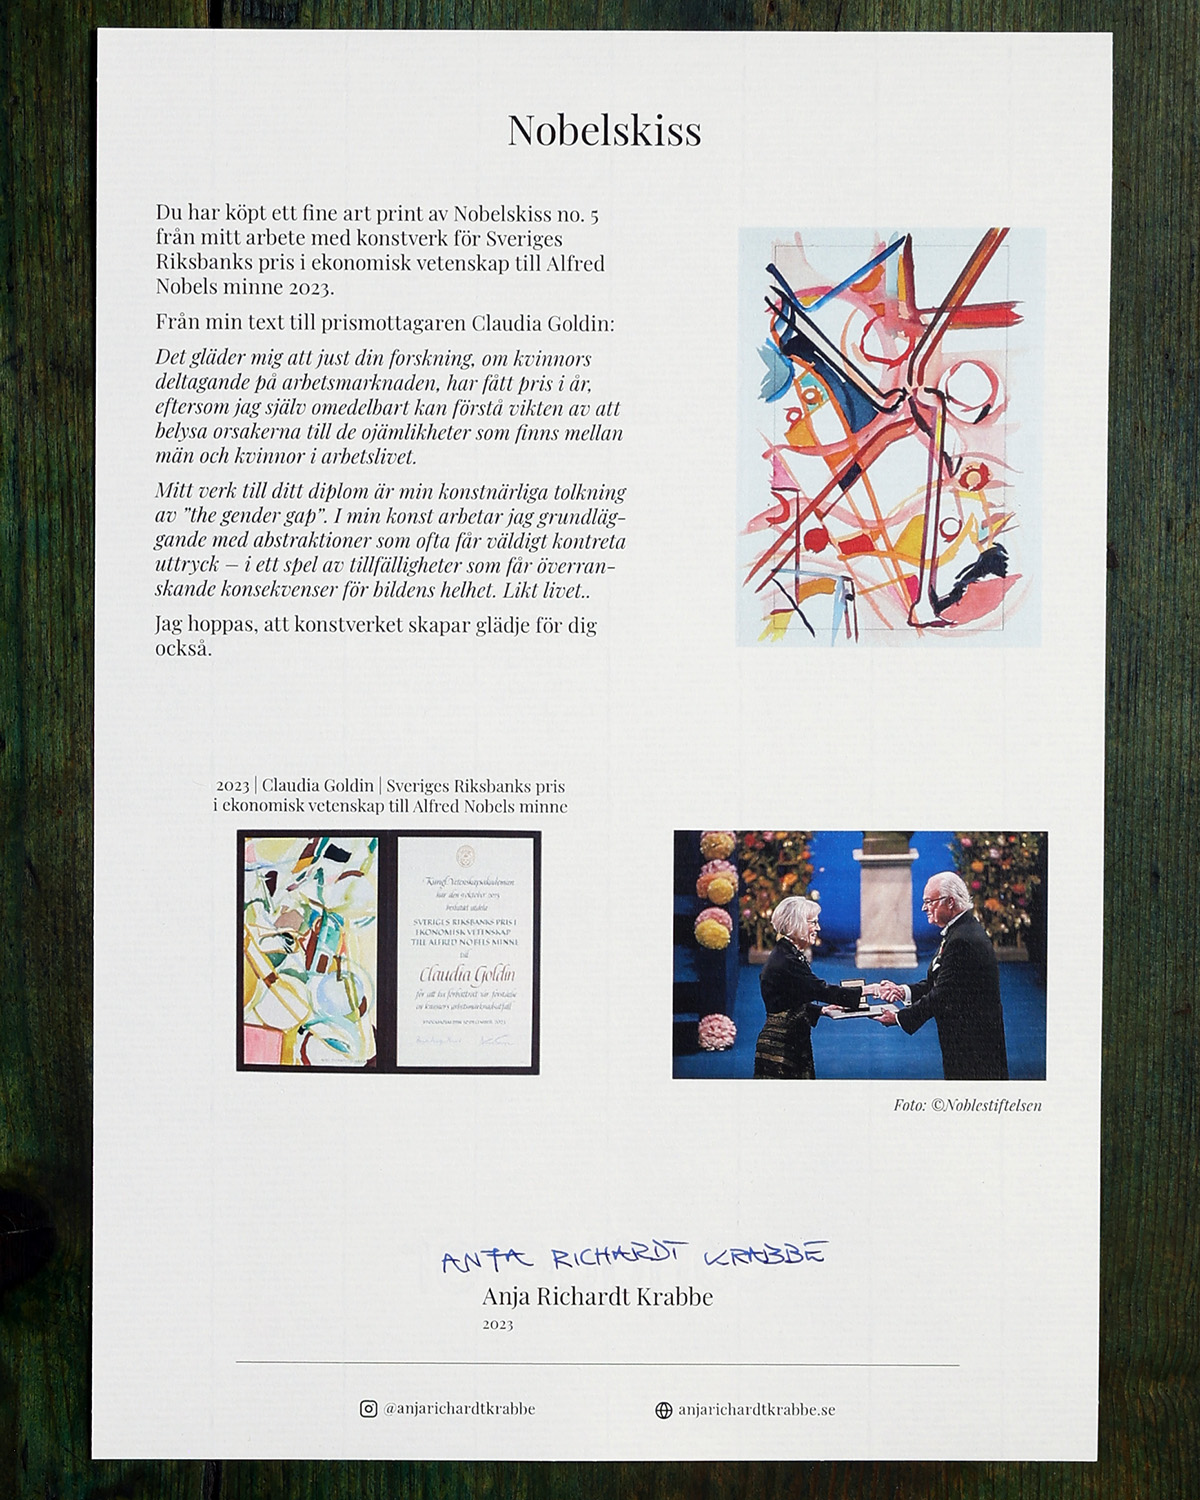 Nobelskiss
Du har köpt ett fine art print av Nobelskiss no. 5
från mitt arbete med konstverk för Sveriges
Riksbanks pris i ekonomisk vetenskap till Alfred
Nobels minne 2023.
Från min text till prismottagaren Claudia Goldin:
Det gläder mig att just din forskning, om kvinnors
deltagande på arbetsmarknaden, har fått pris i år,
eftersom jag själv omedelbart kan förstå vikten av att
belysa orsakerna till de ojämlikheter som finns mellan
män och kvinnor i arbetslivet.
Mitt verk till ditt diplom är min konstnärliga tolkning
av ”the gender gap”. I min konst arbetar jag grundläg-
gande med abstraktioner som ofta får väldigt kontreta
uttryck – i ett spel av tillfälligheter som får överran-
skande konsekvenser för bildens helhet. Likt livet..
Jag hoppas, att konstverket skapar glädje för dig
också.
2023 | Claudia Goldin | Sveriges Riksbanks pris
i ekonomisk vetenskap till Alfred Nobels minne
Kungl. Vetenskapsakademien
har den 9 oktober 2023
beslutat utdela
SVERIGES RIKSBANKS PRIS I
EKONOMISK VETENSKAP
TILL ALFRED NOBELS MINNE
till
Claudia Goldin
för att ha förbättrat vår förståelse
av kvinnors arbetsmarknadsutfall
Foto: ©Noblestiftelsen
ANJA RICHARDT KRABBE
Anja Richardt Krabbe
2023
@anjarichardtkrabbe
anjarichardtkrabbe.se